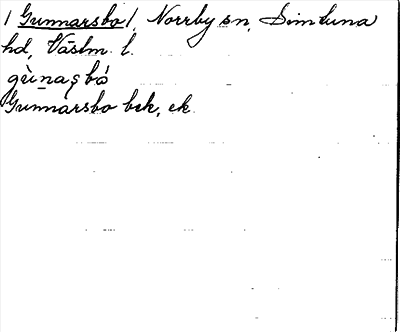 / Gunnarsbo /, Norrby sn, Simtuna
hd, Västm. l.
gùnaşbó
Gunnarsbo bek, ek